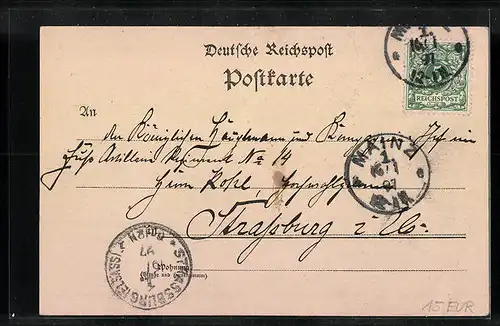 MAINZ
1
16/1
97
12-1N
REICHSPOST
Deutsche Reichspost
Postkarte
An
den Königlichen Hauptmann und Chef im
Fuss Artillerie Regiment No 14
Herrn Hochwohlgeboren
MAINZ
1
16/1
97
Strassburg i. Els.
STRASSBURG (ELSASS)
97
Wohnung
(Straße und Hausnummer)
15 EUR